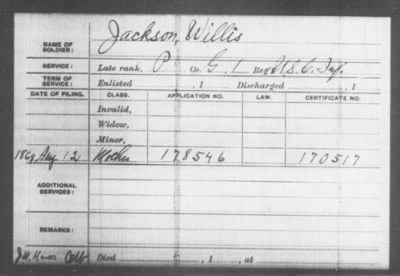 Jackson, Willis
NAME OF SOLDIER:
SERVICE: Late rank, P Co. G, 1 Reg't U.S.C. Inf.
TERM OF SERVICE: Enlisted , 1 Discharged , 1
DATE OF FILING. CLASS. APPLICATION NO. LAW. CERTIFICATE NO.
Invalid,
Widow,
Minor,
1869 Aug 12 Mother 178546 170517
ADDITIONAL SERVICES:
REMARKS:
Died , 1 , at